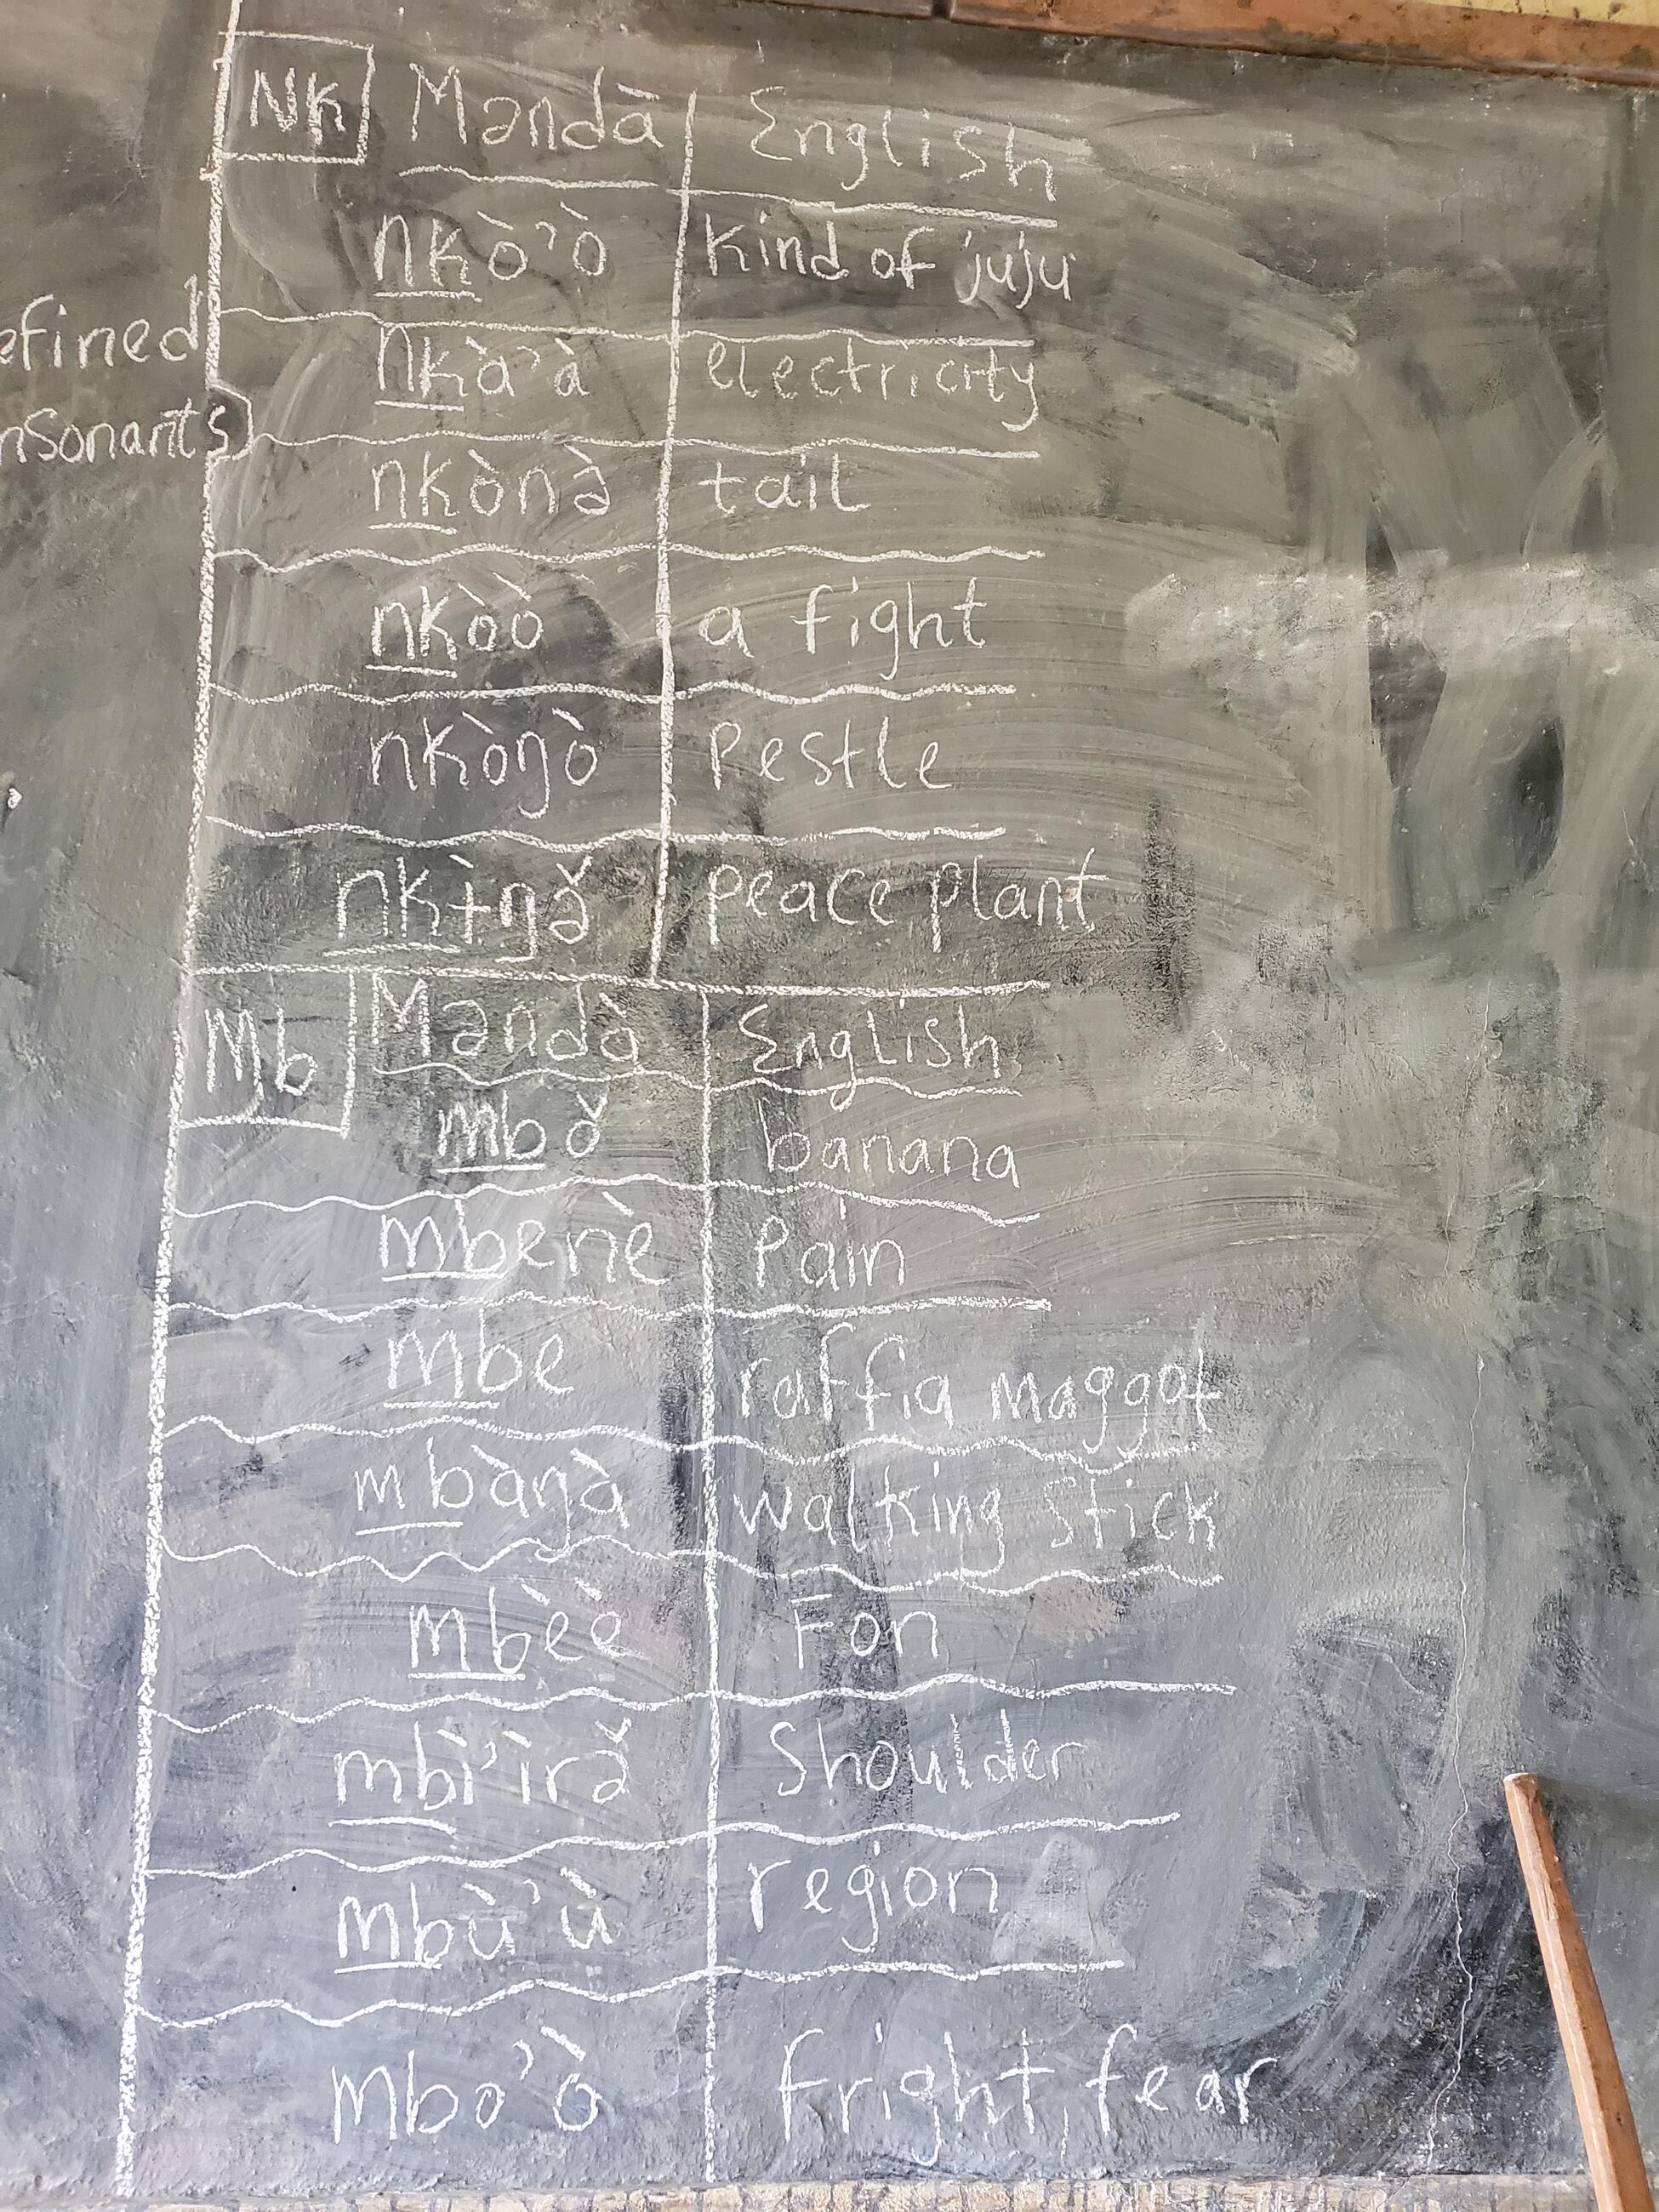 efined
nsonants)
Nk Məndà English
nkò'ò kind of juju
nkà'à electricity
nkònə̀ tail
nkòò a fight
nkòŋò Pestle
nkɨ̀ŋə̌ peace plant
Mb Məndà English
mbǒ banana
mbenè Pain
mbe raffia maggot
mbàŋà walking stick
mbèè Fon
mbì'ìrə̌ Shoulder
mbù'ù region
mbo'ò Fright, fear